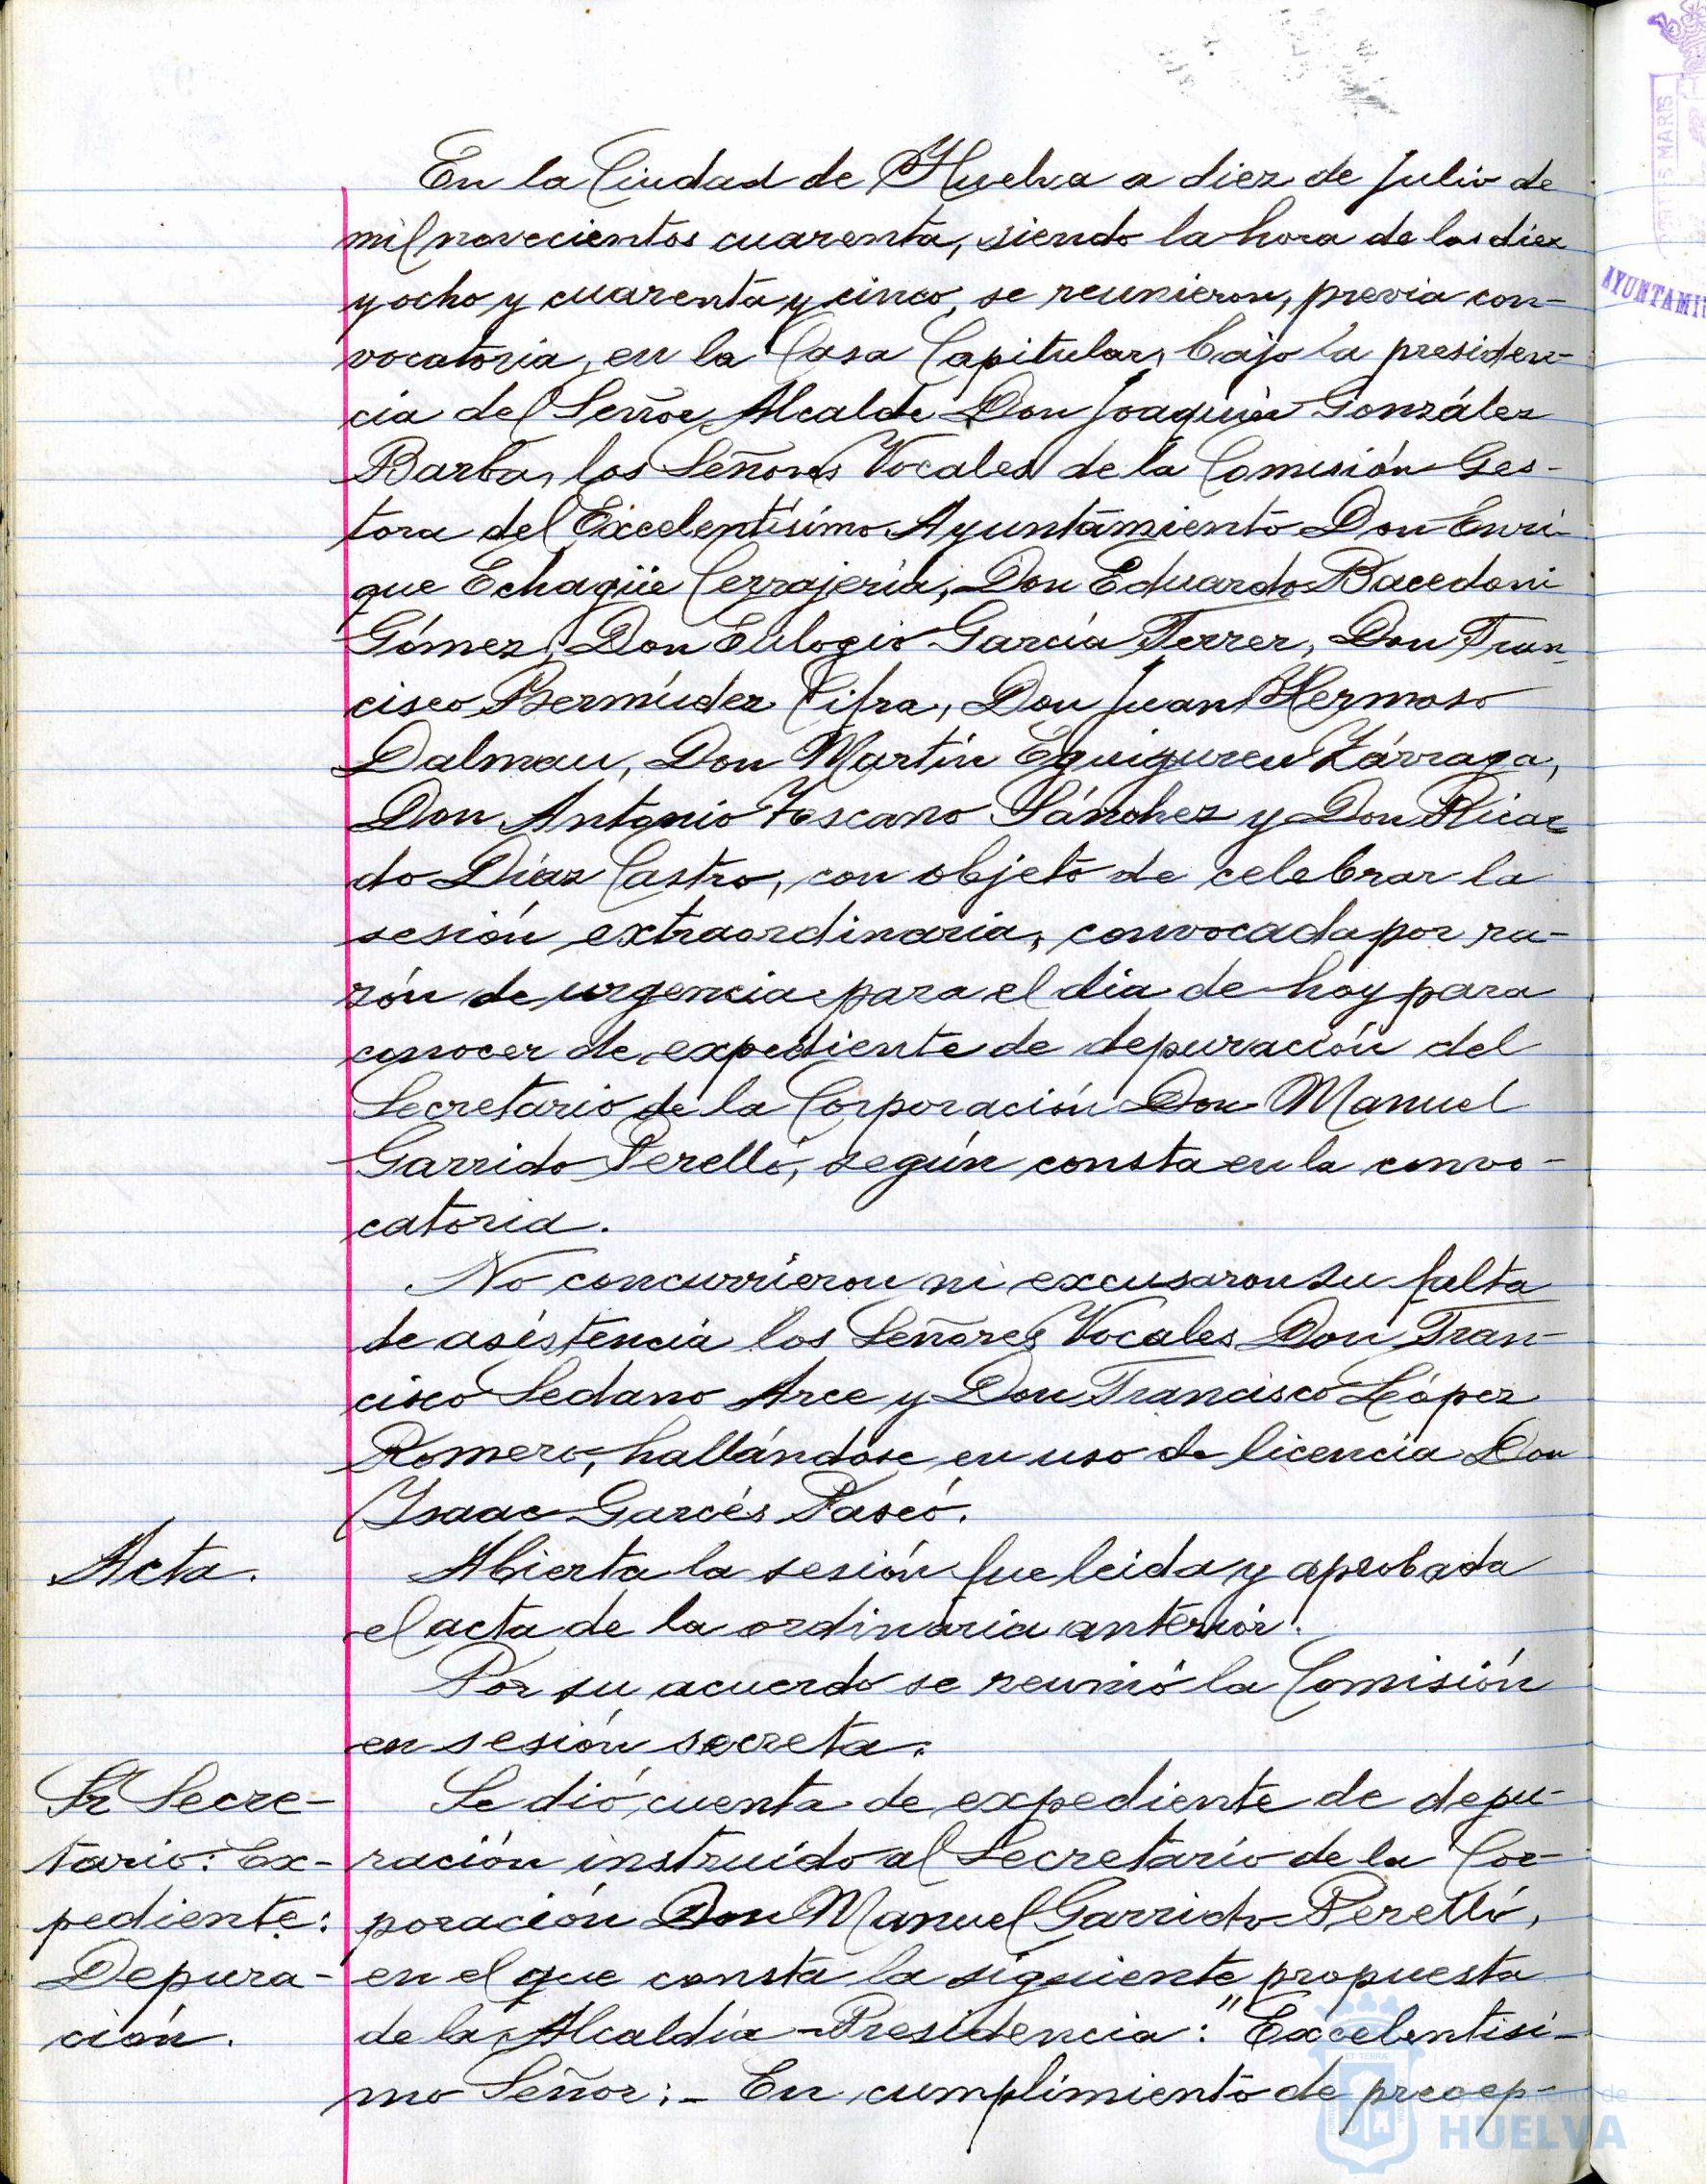 En la Ciudad de Huelva a diez de Julio de
mil novecientos cuarenta, siendo la hora de las diez
y ocho y cuarenta y cinco, se reunieron, previa con-
vocatoria, en la Casa Capitular, bajo la presiden-
cia del Señor Alcalde Don Joaquín González
Barba, los Señores Vocales de la Comisión Ges-
tora del Excelentísimo Ayuntamiento Don Enri-
que Echagüe Cerrajería, Don Eduardo Bacedoni
Gómez, Don Eulogio García Ferrer, Don Fran-
cisco Bermúdez Cifra, Don Juan Hermoso
Dalmau, Don Martín Eguiguren Zárraga,
Don Antonio Toscano Sánchez y Don Ricar-
do Díaz Castro, con objeto de celebrar la
sesión extraordinaria, convocada por ra-
zón de urgencia para el dia de hoy para
conocer de expediente de depuración del
Secretario de la Corporación Don Manuel
Garrido Perelló, según consta en la convo-
catoria.
No concurrieron ni excusaron su falta
de asistencia los Señores Vocales Don Fran-
cisco Sedano Arce y Don Francisco López
Romero, hallándose en uso de licencia Don
Isaac Garcés Paseó.
Acta.
Abierta la sesión fue leida y aprobada
el acta de la ordinaria anterior.
Por su acuerdo se reunió la Comisión
en sesión secreta.
Sr Secre-
tario: Ex-
pediente:
Depura-
ción.
Se dió cuenta de expediente de depu-
ración instruído al Secretario de la Cor-
poración Don Manuel Garrido Perelló,
en el que consta la siguiente propuesta
de la Alcaldía-Presidencia: "Excelentísi-
mo Señor:- En cumplimiento de precep-
AYUNTAMI
MARIS
Ayuntamiento de
HUELVA